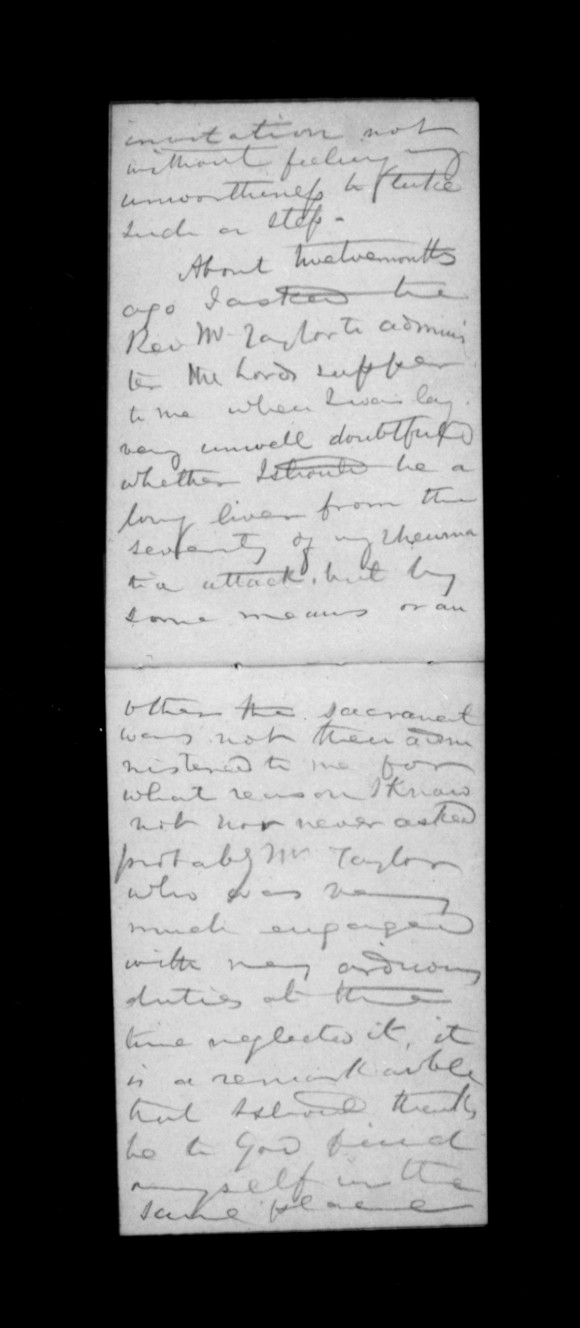 invitation not
without feeling my
unworthiness to take
such a step.
About twelvemonths
ago I asked the
Rev Mr Taylor to adminis
ter the Lords supper
to me when I was lay
very unwell doubtful
whether I should be a
long liver from the
severity of my rheuma
tic attack. but by
some means or an
other the sacrament
was not then adm
nistered to me for
what reason I know
not nor never asked
probably Mr Taylor
who was very
much engaged
with very arduous
duties at the
time neglected it, it
is a remarkable
that I should thanks
be to God find
myself in the
same place